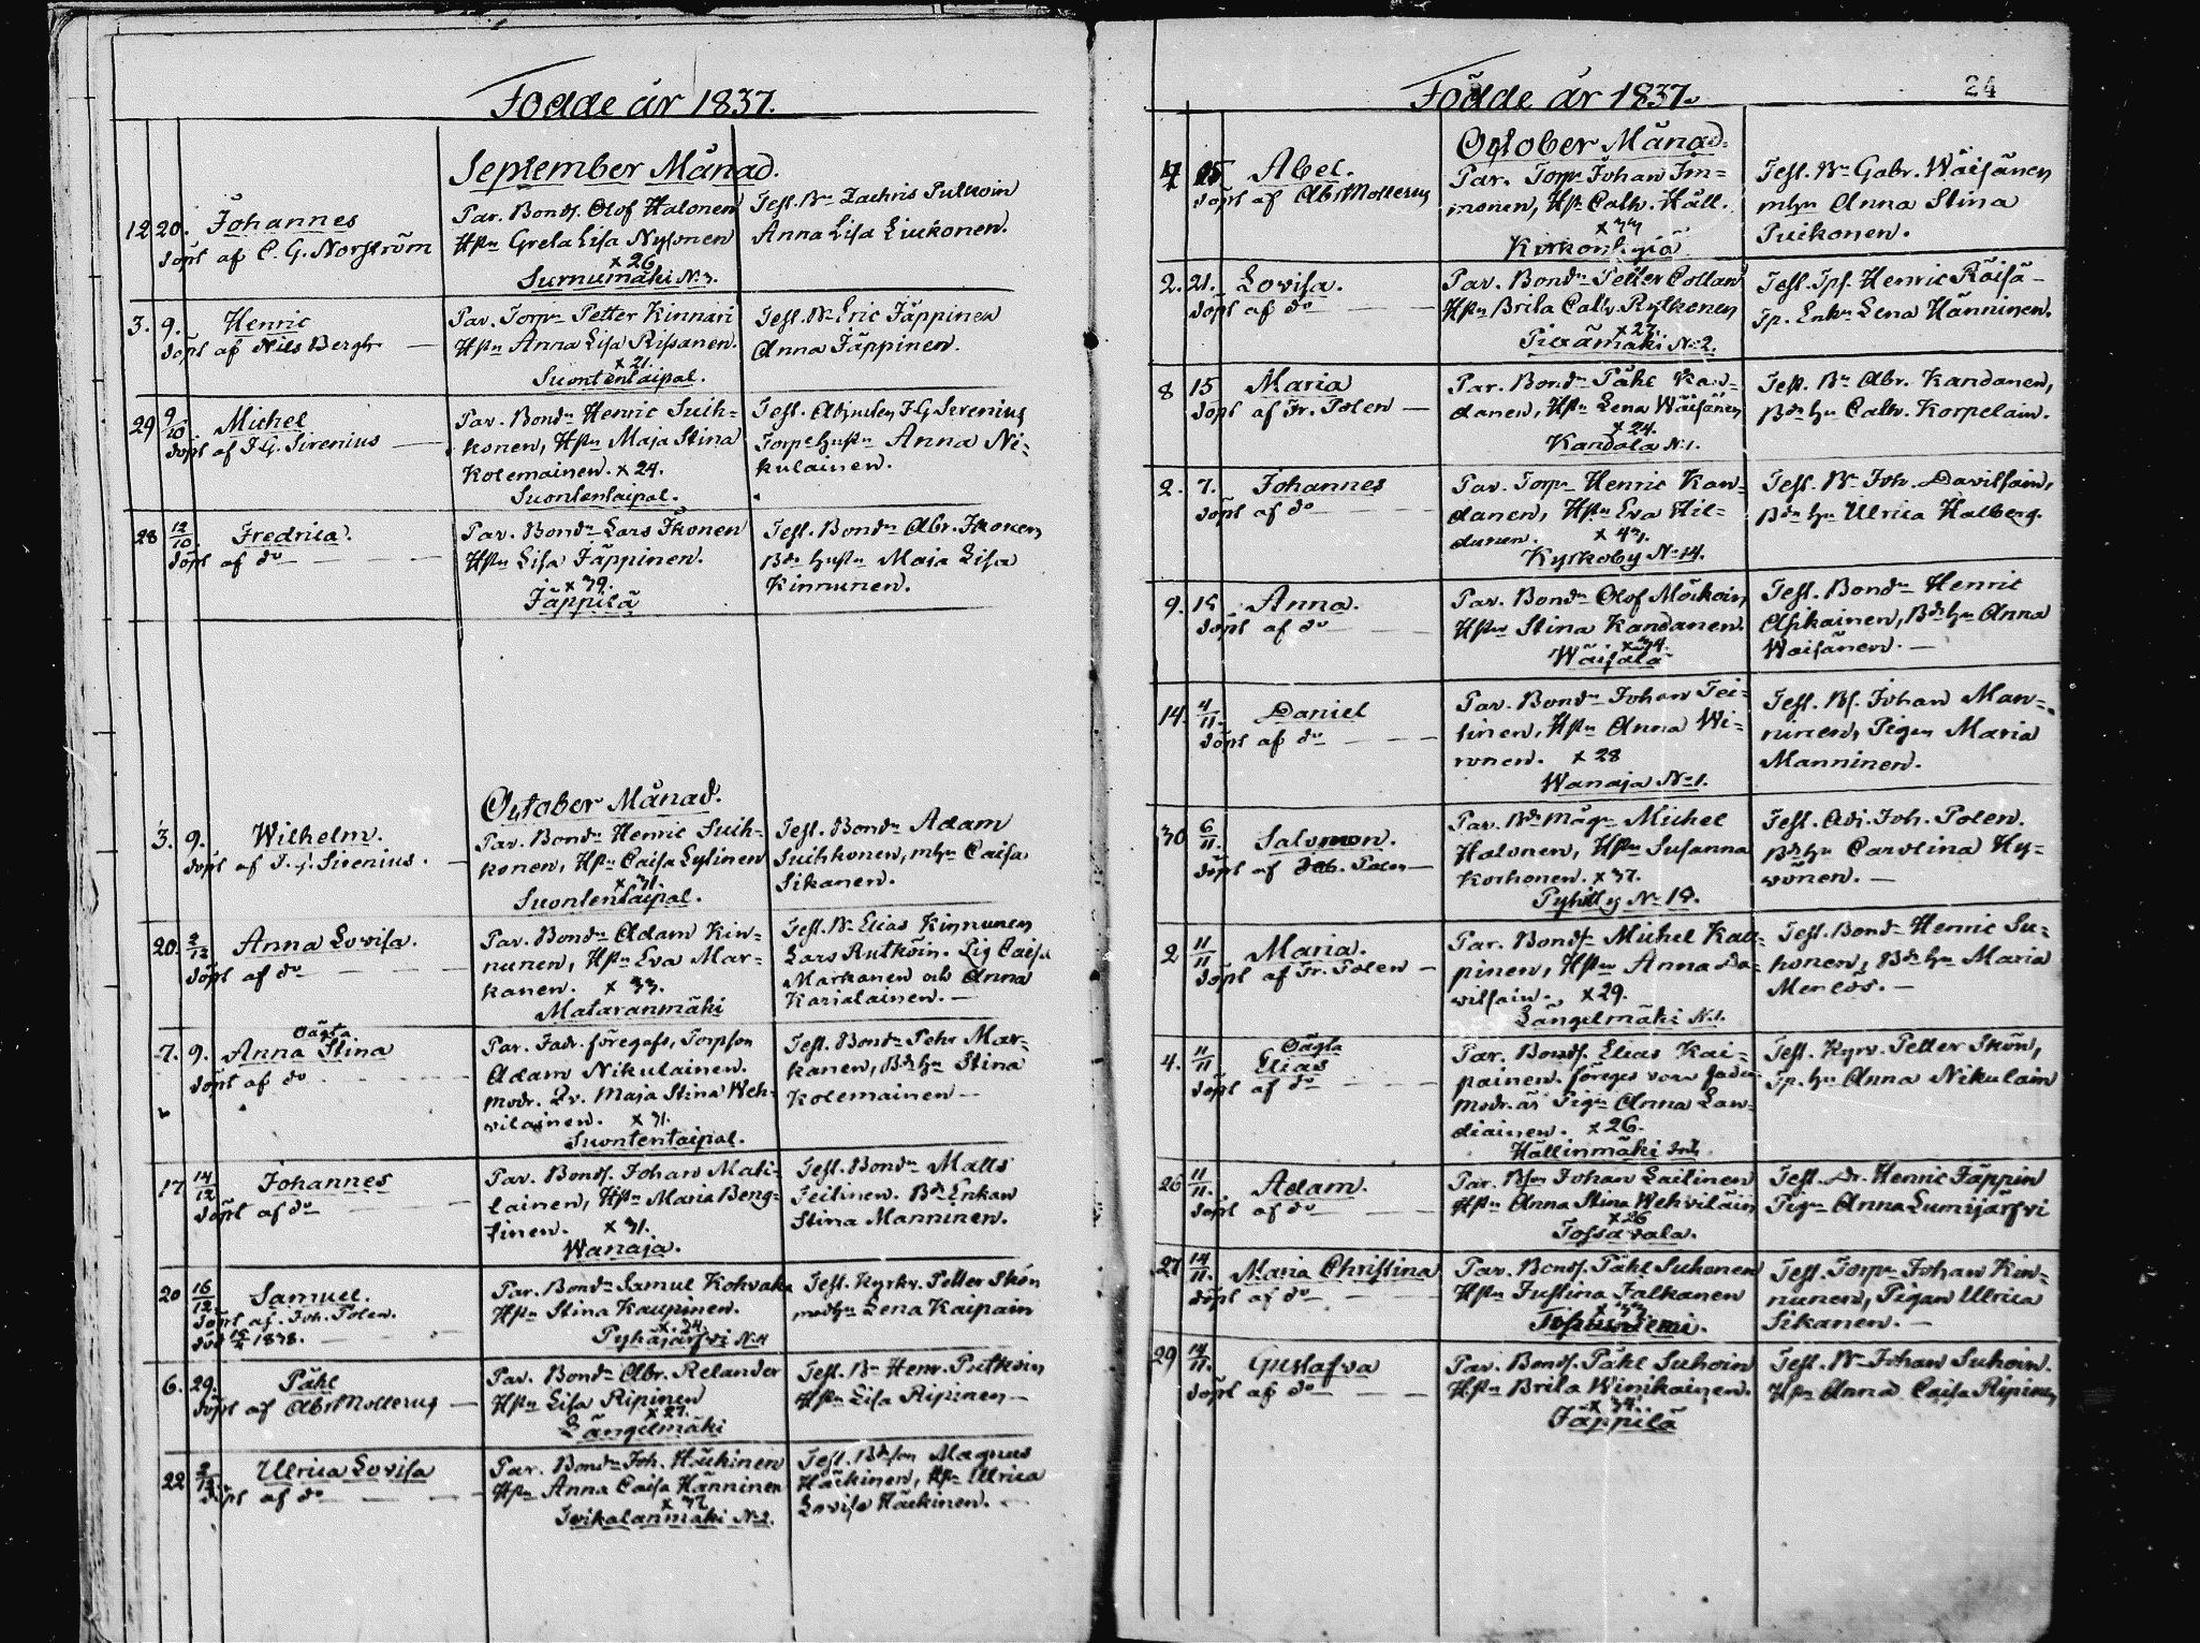 Födde år 1837.
September Månad.
12 20. Johannes
döpt af C. G. Norström
Par. Bonds. Olof Halonen
Hstn Greta Lisa Nysonen
x 26
Surnumäki No 3.
Test. Bn Zachris Putkoin
Anna Lisa Liukonen.
3. 9. Henric
döpt af Nils Bergh
Par. Torpn Petter Kinnari
Hstn Anna Lisa Rissanen.
x 21.
Suontentaipal.
Test. Bn Eric Jäppinen
Anna Jäppinen.
29 9/10 Michel
döpt af J. G. Sirenius
Par. Bondn Henric Suih=
konen, Hstn Maja Stina
Kolemainen. x 24.
Suontentaipal.
Test. Adjuncten J G Sirenius
Torpe hustn Anna Ni=
kulainen.
28 12/10 Fredrica.
döpt af do
Par. Bondn Lars Ikonen
Hstn Lisa Jäppinen.
x 39.
Jäppilä
Test. Bondn Abr. Ikonen
Bdn hustn Maja Lisa
Kinnunen.
October Månad.
3. 9. Wilhelm.
döpt af J. G. Sirenius.
Par. Bondn Henric Suih=
konen, Hstn Caisa Lylinen
x 31.
Suontentaipal.
Test. Bondn Adam
Suihkonen, mhn Caisa
Sikanen.
20. 2/12 Anna Lovisa.
döpt af do
Par. Bondn Adam Kin=
nunen, Hstn Eva Mar=
kanen. x 33.
Mataranmäki
Test. Bn Elias Kinnunen
Lars Rutköin. Pig Caisa
Markanen och Anna
Karialainen.
Oägta
7. 9. Anna Stina
döpt af do
Par. Fadr. föregifs, Torpson
Adam Nikulainen.
Modr. Qv. Maja Stina Weh=
vilainen. x 31.
Suontentaipal.
Test. Bondn Pehr Mar=
kanen, Bdhn Stina
Kolemainen
17 14/12 Johannes
döpt af do
Par. Bonds. Johan Mati=
lainen, Hstn Maria Beng=
tinen. x 31.
Wanaja.
Test. Bondn Matts
Teitinen. Bd. Enkan
Stina Manninen.
20 16/12 Samuel.
döpt af Joh. Polen.
död 12/2 1838.
Par. Bondn Samul Kohvaka
Hstn Stina Kaupinen.
x 34.
Pyhäjärfvi No 4
Test. Kyrkv. Petter Skön
medhn Lena Kaipain
6. 29. Påhl
döpt af Abr Mollerus
Par. Bondn Abr. Relander
Hstn Lisa Ripinen
x 27.
Längelmäki
Test. Bn Henr. Putkoin
Hstn Lisa Ripinen
22 2/12 Ulrica Lovisa
döpt af do
Par. Bondn Joh. Häckinen
Hstn Anna Caisa Hänninen
x 32
No 2.
Test. Bdson Magnus
Häckinen, Hstn Ulrica
Lovisa Häckinen.
Födde år 1837.
24
October Månad.
15 Abel.
döpt af Abr Mollerus
Par. Torpr Johan Im=
monen, Hstn Cath. Häll.
x 33
Test. Bn Gabr. Wäisänen
mhn Anna Stina
Puikonen.
2. 21. Lovisa.
döpt af do
Par. Bondn Petter Collan
Hstn Brita Cath. Rytkönen
x 27.
No 2.
Test. Tps. Henric Räisä
Tp. Enkn Lena Hänninen.
8 15 Maria
döpt af Fr. Polen
Par. Bondn Påhl Kan=
danen, Hstn Lena Wäisänen
x 24.
Kandala No 1.
Test. Bn Abr. Kandanen,
Bdn hn Cath. Korpelain.
2. 7. Johannes
döpt af do
Par. Torpr Henric Kan=
danen, Hstn Eva Hil=
dunen. x 43.
Kyrkoby No 14.
Test. Bn Joh. Davitsain,
Bdn hn Ulrica Halberg.
9. 15 Anna.
döpt af do
Par. Bondn Olof Möikoin,
Hstn Stina Kandanen.
x 34.
Wäisälä
Test. Bondn Henric
Asikainen, Bdhn Anna
Waisänen.
14. 4/11. Daniel
döpt af do
Par. Bondn Johan Tei=
tinen, Hstn Anna Wi=
ronen. x 28
Wanaja No 1.
Test. Bs. Johan Man=
ninen, Pigan Maria
Manninen.
30 6/11. Salomon.
döpt af Joh. Polen
Par. Bd Mågn Michel
Halonen, Hstn Susanna
Korhonen. x 37.
Test. Adj. Joh. Polen.
Bdhn Carolina Hy=
vönen.
2 11/11 Maria.
döpt af Fr. Polen
Par. Bonds. Michel Kau=
pinen, Hstn Anna Da=
vitsain. x 29.
Längelmäki No 1.
Test. Bondn Henric Su=
honen, Bdhn Maria
Menlös.
Oägta
4. 11/11 Elias
döpt af do
Par. Bonds. Elias Kai=
painen. föreges vara fader
Modr. är Pign Anna Lau=
diainen. x 26.
Hällinmäki Inh.
Test. Kyrv. Petter Skön,
Tp. hn Anna Nikulain
26 11/11. Adam.
döpt af do
Par. Johan Laitinen
Hstn Anna Stina Wehviläin
x 26
Tossavala.
Test. Dr. Henric Jäppin
Pign Anna Lumijärfvi
27 14/11. Maria Christina
döpt af do
Par. Bonds. Påhl Suhonen
Hstn Justina Jalkanen
x 33.
Test. Torpr Johan Kin=
nunen, Pigan Ulrica
Sikanen.
29 14/11. Gustafva
döpt af do
Par. Bonds. Påhl Suhoin
Hstn Brita Winikainen.
x 34.
Jäppilä
Test. Bn Johan Suhoin.
Hstn Anna Caisa Ripinen